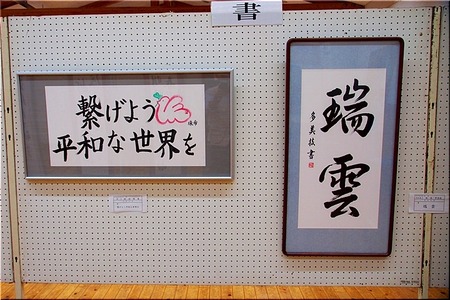 書
繋げよう
平和な世界を
瑞雲
多美枝書